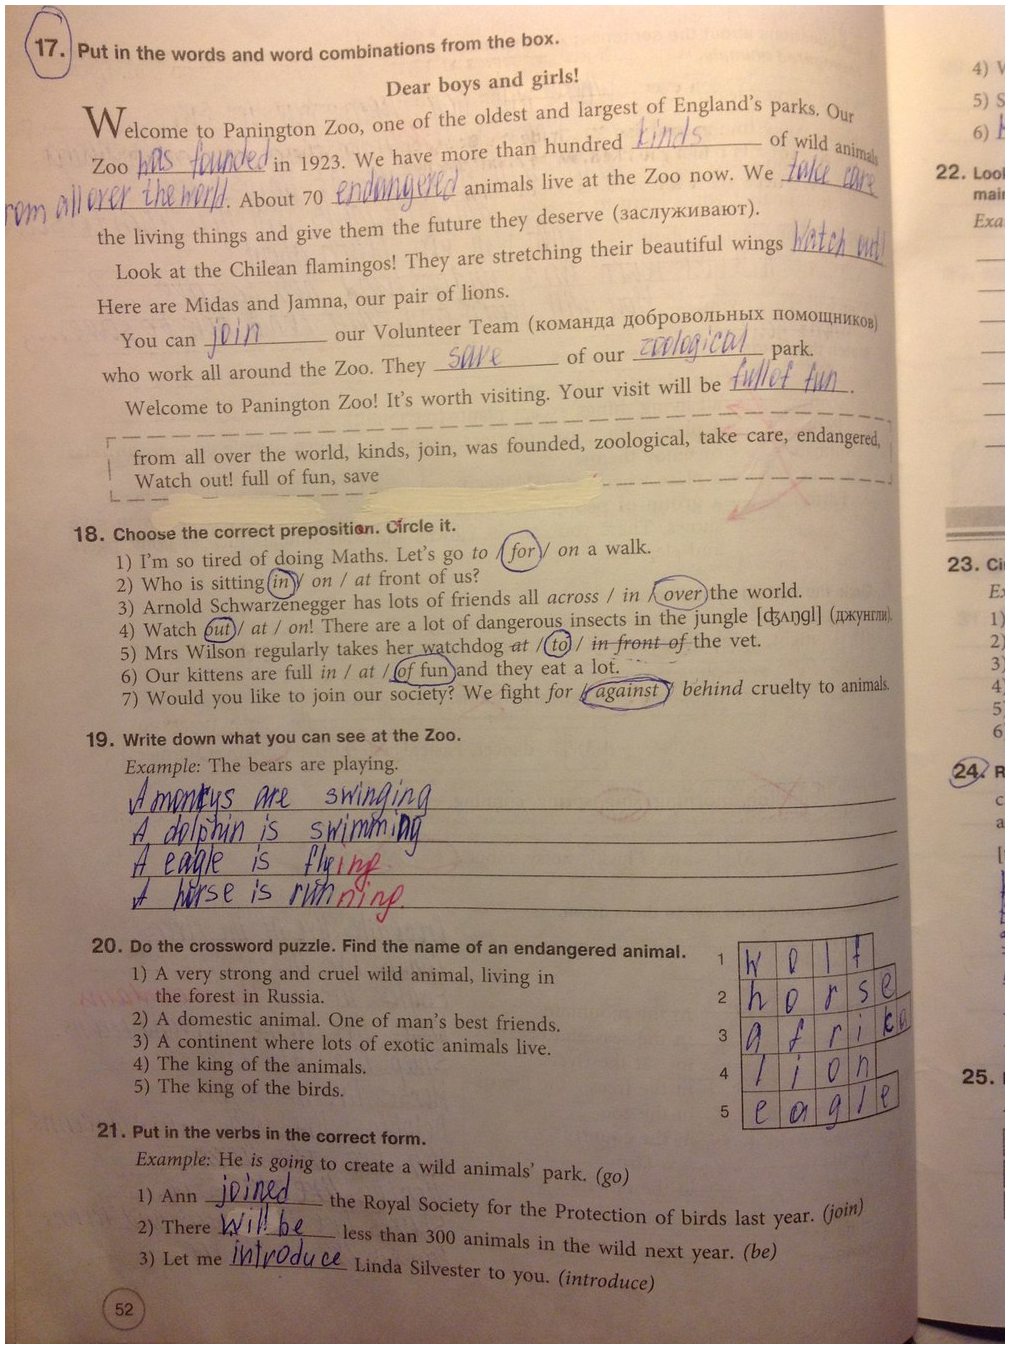 17. Put in the words and word combinations from the box.
Dear boys and girls!
Welcome to Panington Zoo, one of the oldest and largest of England's parks. Our
Zoo was founded in 1923. We have more than hundred kinds of wild animals
from all over the world. About 70 endangered animals live at the Zoo now. We take care
the living things and give them the future they deserve (заслуживают).
Look at the Chilean flamingos! They are stretching their beautiful wings Watch out!
Here are Midas and Jamna, our pair of lions.
You can join our Volunteer Team (команда добровольных помощников)
who work all around the Zoo. They save of our zoological park.
Welcome to Panington Zoo! It's worth visiting. Your visit will be full of fun.
from all over the world, kinds, join, was founded, zoological, take care, endangered,
Watch out! full of fun, save
18. Choose the correct preposition. Circle it.
1) I'm so tired of doing Maths. Let's go to / for / on a walk.
2) Who is sitting in / on / at front of us?
3) Arnold Schwarzenegger has lots of friends all across / in / over the world.
4) Watch out / at / on! There are a lot of dangerous insects in the jungle [ʤʌŋgl] (джунгли).
5) Mrs Wilson regularly takes her watchdog at / to / in front of the vet.
6) Our kittens are full in / at / of fun and they eat a lot.
7) Would you like to join our society? We fight for / against / behind cruelty to animals.
19. Write down what you can see at the Zoo.
Example: The bears are playing.
A monkys are swinging
A dolphin is swimming
A eagle is flying
A horse is running.
20. Do the crossword puzzle. Find the name of an endangered animal.
1) A very strong and cruel wild animal, living in
the forest in Russia.
2) A domestic animal. One of man's best friends.
3) A continent where lots of exotic animals live.
4) The king of the animals.
5) The king of the birds.
1 wolf
2 horse
3 afrika
4 lion
5 eagle
21. Put in the verbs in the correct form.
Example: He is going to create a wild animals' park. (go)
1) Ann joined the Royal Society for the Protection of birds last year. (join)
2) There will be less than 300 animals in the wild next year. (be)
3) Let me introduce Linda Silvester to you. (introduce)
52
4)
5) S
6)
22. Look
mai
Exa
23. Ci
Ex
1)
2)
3)
4)
5)
6
24. R
c
a
25.